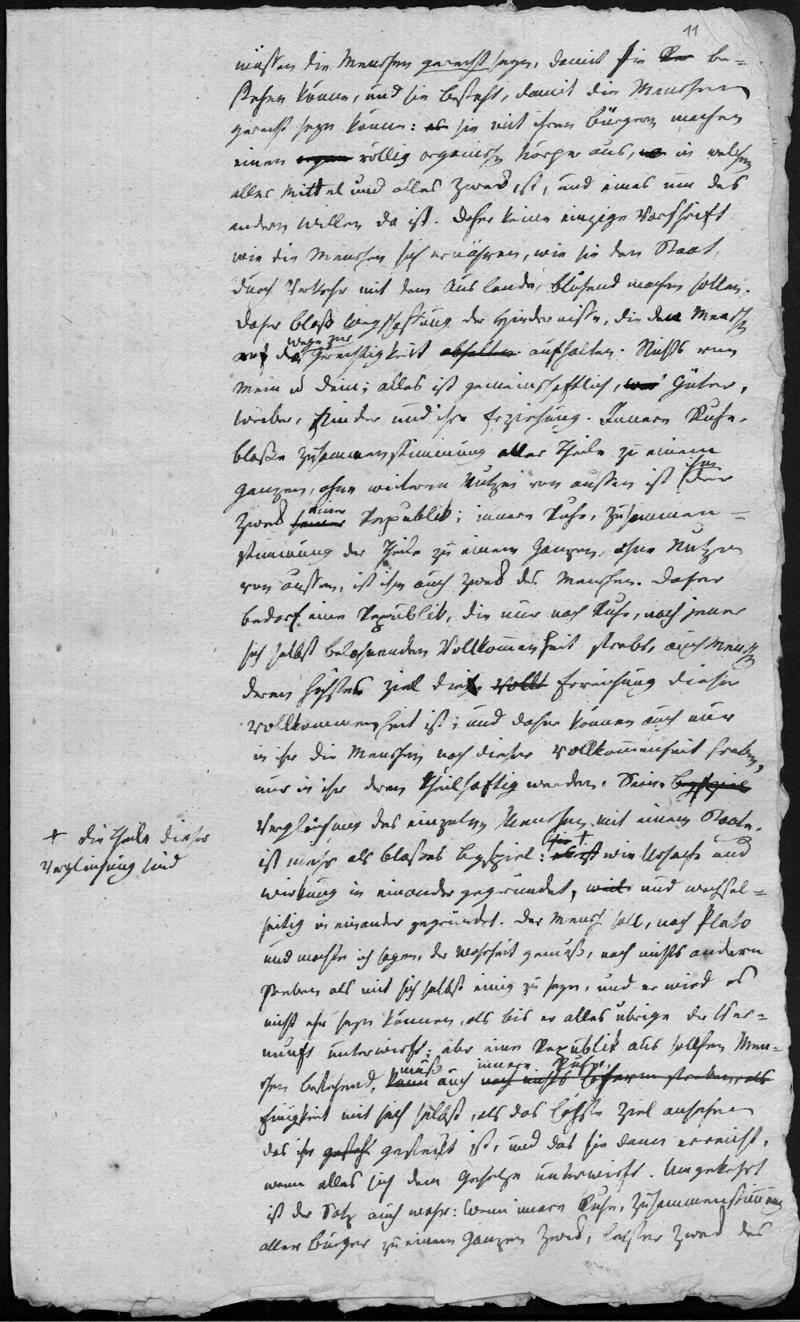 11
müssen die Menschen gerecht seyn, damit sie be-
stehen könne, und sie besteht, damit die Menschen
gerecht seyn können: sie mit ihren Bürgern machen
einen völlig organischen Körper aus, in welchem
alles Mittel und alles Zwek ist, und eines um des
andern willen da ist. Daher keine einzige Vorschrift
wie die Menschen sich ernähren, wie sie den Staat,
durch Verkehr mit dem Auslande, blühend machen sollen.
Daher bloß Wegschaffung der Hindernisse, die den Mensch
auf dem Wege zur Gerechtigkeit abhalten aufhalten. Nichts von
Mein u Dein; alles ist gemeinschaftlich, Güter,
Weiber, Kinder und ihre Erziehung. Innere Ruhe,
bloße Zusammenstimmung aller Theile zu einem
Ganzen, ohne weitern Nutzen von aussen ist ihm der
Zwek seiner einer Republik; innere Ruhe, Zusammen-
stimmung der Theile zu einem Ganzen, ohne Nutzen
von aussen, ist ihm auch Zwek des Menschen. Daher
bedarf eine Republik, die nur nach Ruhe, nach jener
sich selbst belohnenden Vollkommenheit strebt, auch Mensch
deren höchstes Ziel die Erreichung dieser
Vollkommenheit ist; und daher können auch nur
in ihr die Menschen nach dieser Vollkommenheit streben,
nur in ihr deren theilhaftig werden. Seine Beyspiel
Vergleichung des einzelnen Menschen mit einem Staate,
ist mehr als bloßes Beyspiel: sie + wie Ursache und
Wirkung in einander gegründet, und wechsel-
seitig in einander gegründet. Der Mensch soll, nach Plato
und möchte ich sagen, der Wahrheit gemäß, nach nichts anderm
streben als mit sich selbst einig zu seyn, und er wird es
nicht ehr seyn können, als bis er alles übrige der Ver-
nunft unterwirft; aber eine Republik aus solchen Men-
schen bestehend, kann muß auch nach nichts höherm streben, als innere Ruhe,
Einigkeit mit sich selbst, als das höchste Ziel ansehen
das ihr gesteckt ist, und das sie dann erreicht,
wenn alles sich dem Gesetze unterwirft. Umgekehrt
ist der Satz auch wahr: wenn innere Ruhe, Zusammenstimmung
aller Bürger zu einem Ganzen Zwek, letzter Zwek des
+ die Theile dieser
Vergleichung sind